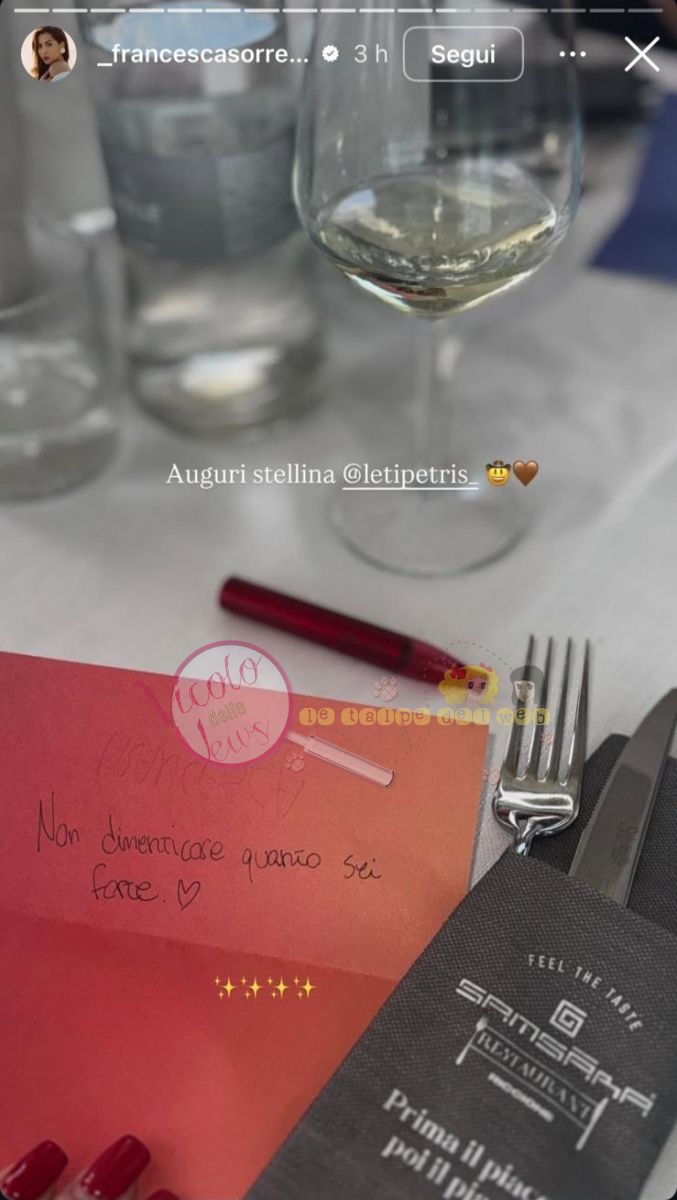 _francescasorre... 3 h Segui
Auguri stellina @letipetris_ 🤠🤎
Vicolo
delle
News
le talpe del web
Non dimenticare quanto sei
forte. ♡
✨✨✨✨
FEEL THE TASTE
SAMSARA
RESTAURANT
RICCIONE
Prima il piac
poi il pia